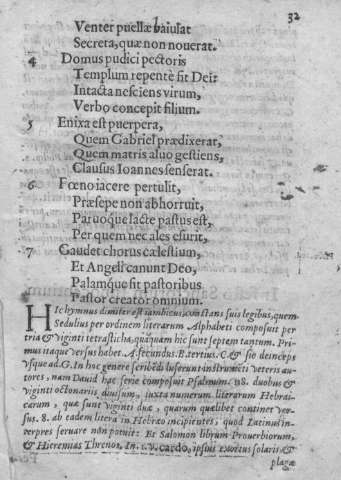 32
Venter puellæ baiulat
Secreta, quæ non nouerat.
4 Domus pudici pectoris
Templum repentè fit Dei:
Intacta nesciens virum,
Verbo concepit filium.
5 Enixa est puerpera,
Quem Gabriel prædixerat,
Quem matris aluo gestiens,
Clausus Ioannes senserat.
6 Fœno iacere pertulit,
Præsepe non abhorruit,
Paruoque lacte pastus est,
Per quem nec ales esurit,
7 Gaudet chorus cælestium,
Et Angeli canunt Deo,
Palamque fit pastoribus
Pastor creator omnium.
HIc hymnus dimiter est iambicus, constans suis legibus, quem
Sedulius per ordinem literarum Alphabeti composuit per
tria & viginti tetrasticha, quanquam hic sunt septem tantum. Pri
mus itaque versus habet A. secundus B. tertius C. & sic deinceps
vsque ad G. In hoc genere scribēdi luserunt veteris au
tores, nam Dauid hac serie composuit Psalmum. 118. duobus &
viginti octonariis, diuisum, iuxta numerum literarum Hebrai-
carum, quæ sunt viginti duæ, quarum quælibet continet ver-
sus. 8. ab eadem litera in Hebræo incipientes, quod Latinus in-
terpres seruare non potuit: Et Salomon librum Prouerbiorum,
& Hieremias Threnos. In. 1. v. cardo, ipsius exortus solaris &
plagæ